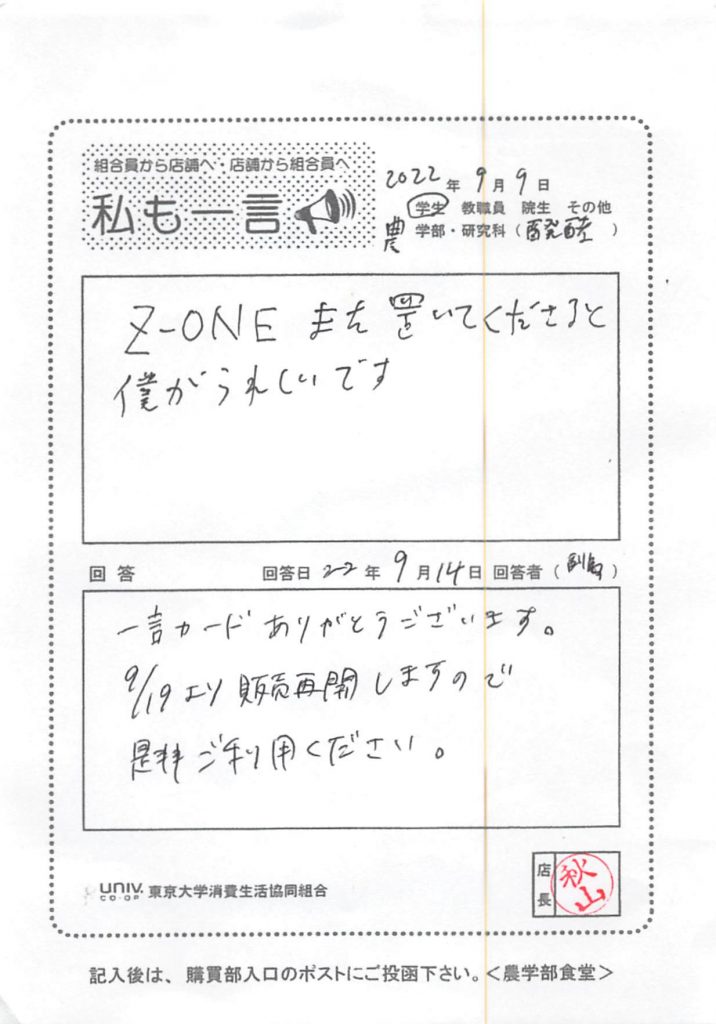 組合員から店舗へ・店舗から組合員へ
私も一言
2022年9月9日
学生 教職員 院生 その他
農学部・研究科(醗酵)
Z-ONE また置いてくださると
僕がうれしいです
回答 回答日 22年9月14日 回答者()
一言カードありがとうございます。
9/19より販売再開しますので
是非ご利用ください。
UNIV. CO-OP 東京大学消費生活協同組合
店長 秋山
記入後は、購買部入口のポストにご投函下さい。<農学部食堂>